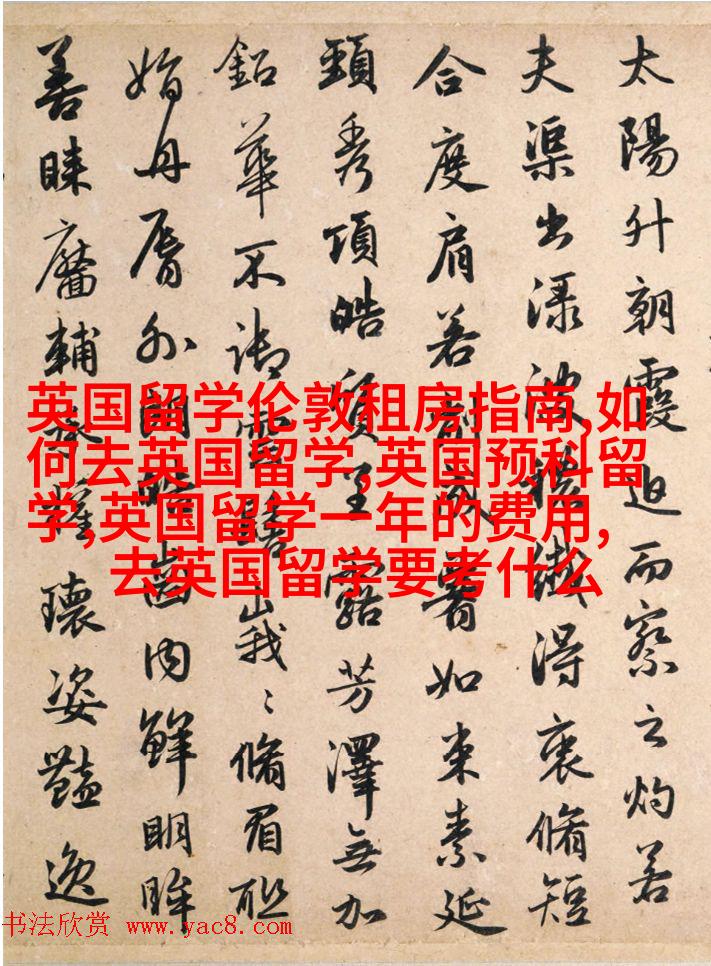 太陽升朝霞迫而察之灼若
夫渠出渌波穠纖得衷脩短
合度肩若削成腰如束素延
頸秀項皓質呈露芳澤無加
鉛華不御雲髻峩〻脩眉聯
娟丹脣外朗皓齒内鮮明眸
善睞靨輔承權瓌姿豔逸
英国留学伦敦租房指南,如
何去英国留学,英国预科留
学,英国留学一年的费用,
去英国留学要考什么
书法欣赏 www.yac8.com